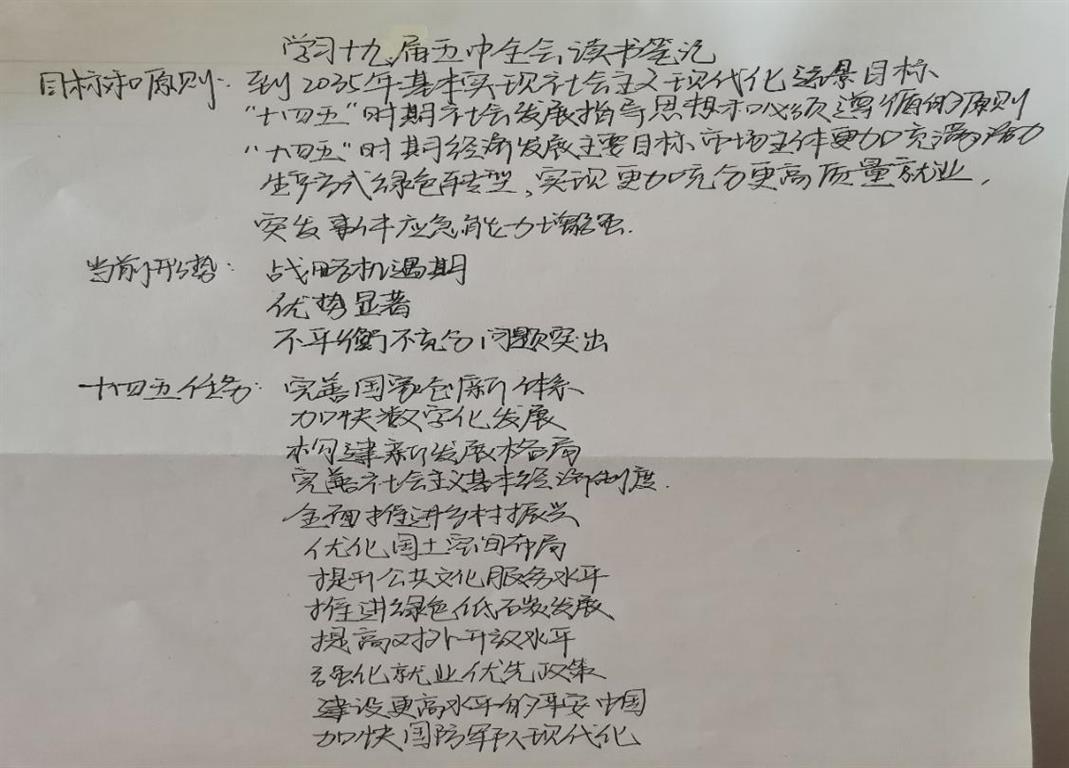 学习十九届五中全会读书笔记
目标和原则：到2035年基本实现社会主义现代化远景目标
“十四五”时期社会发展指导思想和必须遵循的原则
“十四五”时期经济发展主要目标，市场主体更加充满活力
生产方式绿色转型，实现更加充分更高质量就业，
突发事件应急能力增强.
当前形势：战略机遇期
优势显著
不平衡不充分问题突出
十四五任务：完善国家创新体系
加快数字化发展
构建新发展格局
完善社会主义基本经济制度.
全面推进乡村振兴
优化国土空间布局
提升公共文化服务水平
推进绿色低碳发展
提高对外开放水平
强化就业优先政策
建设更高水平的平安中国
加快国防军队现代化